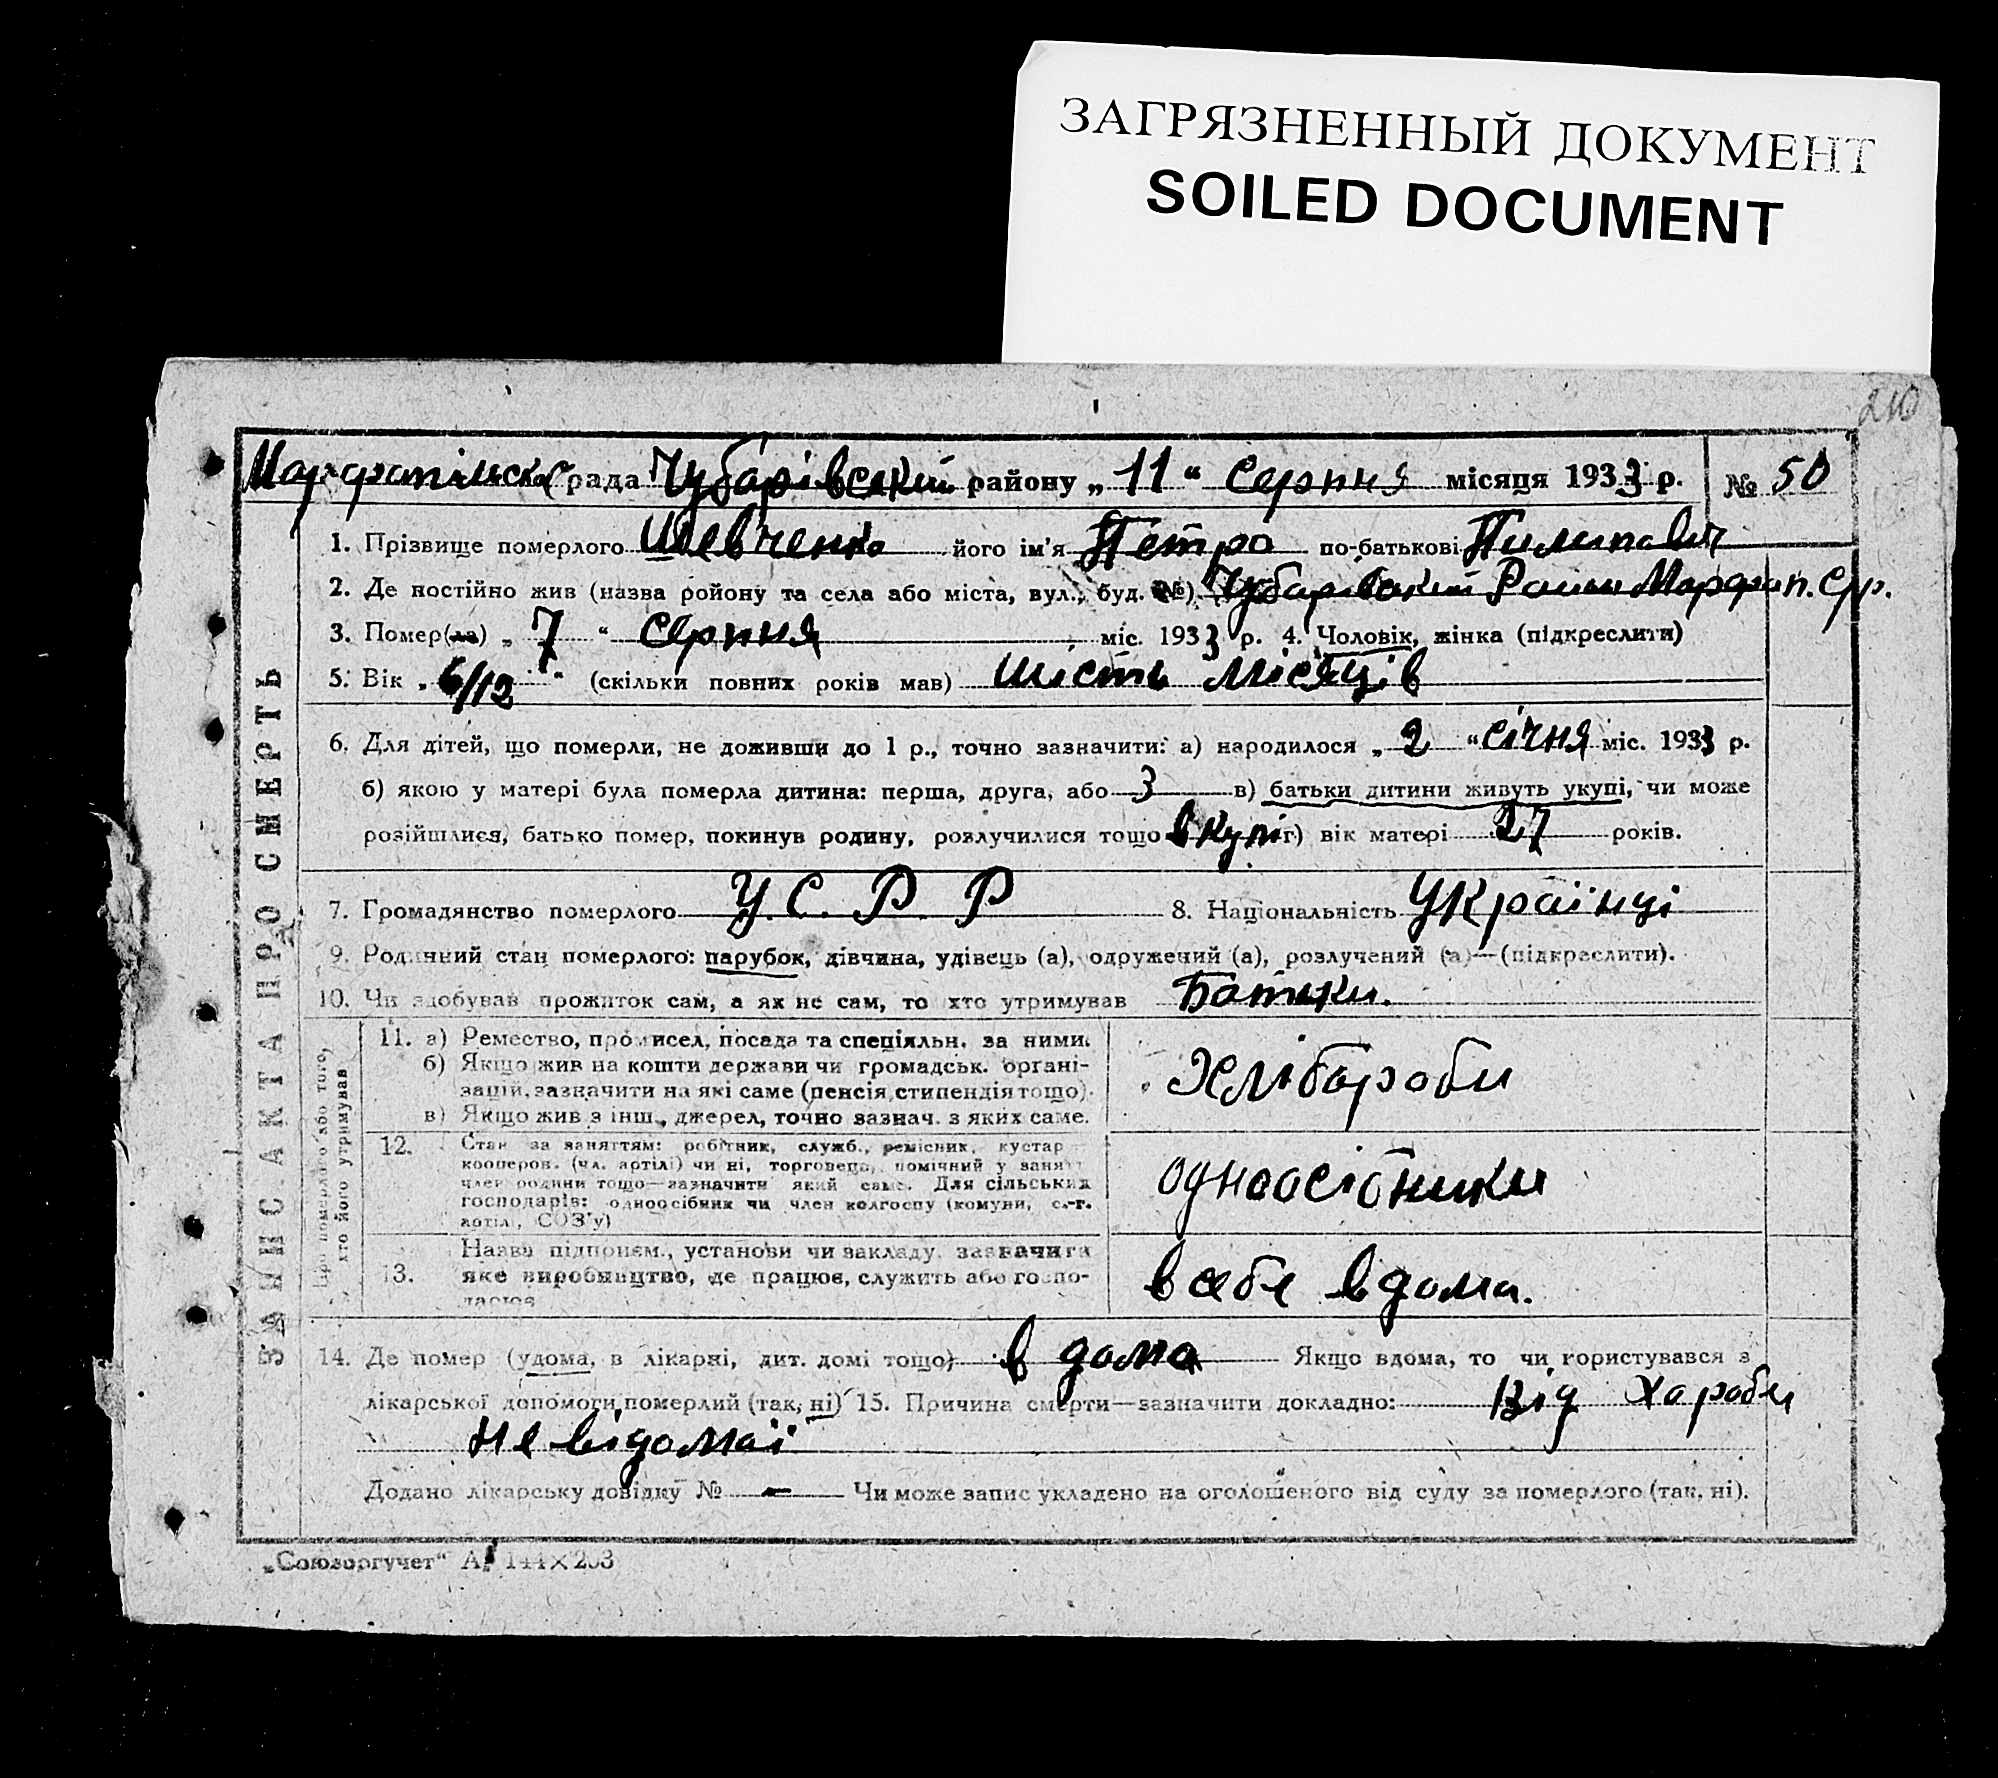 ЗАГРЯЗНЕННЫЙ ДОКУМЕНТ
SOILED DOCUMENT
210
рада Чубарівский району „11“ Серпня місяця 1933 р. № 50
1. Прізвище померлого Шевченко його ім'я Петро по-батькові Пилипович
2. Де постійно жив (назва ройону та села або міста, вул., буд. №) Чубарівский Район
3. Помер(ла) „7“ Серпня міс. 1933 р. 4. Чоловік, жінка (підкреслити)
5. Вік „6/12“ (скільки повних років мав) шість місяців
6. Для дітей, що померли, не доживши до 1 р., точно зазначити: а) народилося „2“ січня міс. 1933 р.
б) якою у матері була померла дитина: перша, друга, або 3 в) батьки дитини живуть укупі, чи може
розійшлися, батько помер, покинув родину, розлучилися тощо вкупі г) вік матері 27 років.
7. Громадянство померлого У.С.Р.Р 8. Національність Українці
9. Родинний стан померлого: парубок, дівчина, удівець (а), одружений (а), розлучений (а)—(підкреслити).
10. Чи здобував прожиток сам, а як не сам, то хто утримував Батьки.
ЗАПИС АКТА ПРО СМЕРТЬ
Про померлого або того,
хто його утримував
11. а) Ремество, промисел, посада та спеціяльн. за ними.
б) Якщо жив на кошти держави чи громадськ. органі-
зацій, зазначити на які саме (пенсія, стипендія тощо).
в) Якщо жив з інш. джерел, точно зазнач. з яких саме.
Хлібароби
12. Стан за заняттям: робітник, служб., ремісник, кустар
кооперов. (чл. артілі) чи ні, торговець, помічний у занят.
член родини тощо—зазначити який саме. Для сільських
господарів: одноосібник чи член колгоспу (комуни, с.-г.
артілі, СОЗ'у)
одноосібники
13. Назва підприєм., установи чи закладу, зазначити
яке виробництво, де працює, служить або госпо-
дарює
в себе вдома.
14. Де помер (удома, в лікарні, дит. домі тощо) в дома Якщо вдома, то чи користувався з
лікарської допомоги померлий (так, ні) 15. Причина смерти—зазначити докладно: Від хароби
не відомаї
Додано лікарську довідку № — Чи може запис укладено на оголошеного від суду за померлого (так, ні).
„Союзоргучет“ А 144×203